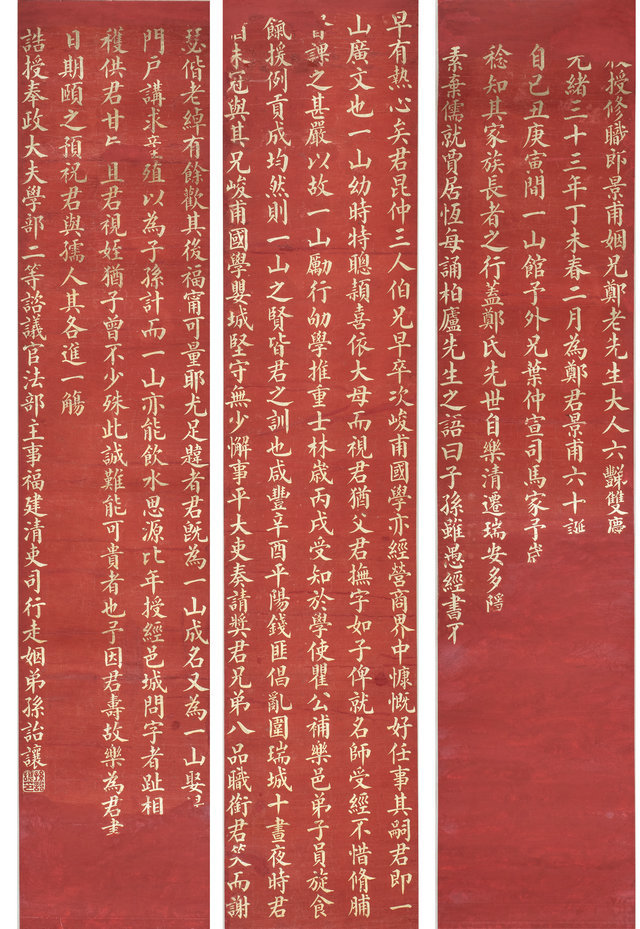 授修職郎景甫姻兄鄭老先生大人六豑雙慶
光緒三十三年丁未春二月為鄭君景甫六十誕
自己丑庚寅間一山館予外兄葉仲宣司馬家予
稔知其家族長者之行蓋鄭氏先世自樂清遷瑞安多隱
素棄儒就賈居恆每誦柏廬先生之語曰子孫雖愚經書不
早有熱心矣君昆仲三人伯兄早卒次峻甫國學亦經營商界中慷慨好任事其嗣君即一
山廣文也一山幼時特聰穎喜依大母而視君猶父君撫字如子俾就名師受經不惜脩脯
課之甚嚴以故一山勵行劬學推重士林歲丙戌受知於學使瞿公補樂邑弟子員旋食
餼援例貢成均然則一山之賢皆君之訓也咸豐辛酉平陽錢匪倡亂圍瑞城十晝夜時君
未冠與其兄峻甫國學嬰城堅守無少懈事平大吏奏請獎君兄弟八品職銜君笑而謝
瑟偕老綽有餘歡其後福甯可量耶尤足韙者君既為一山成名又為一山娶
門戶講求孳殖以為子孫計而一山亦能飲水思源比年授經邑城問字者趾相
穫供君甘旨且君視姪猶子曾不少殊此誠難能可貴者也予因君壽故樂為君書
日期頤之預祝君與孺人其各進一觴
誥授奉政大夫學部二等諮議官法部主事福建清吏司行走姻弟孫詒讓